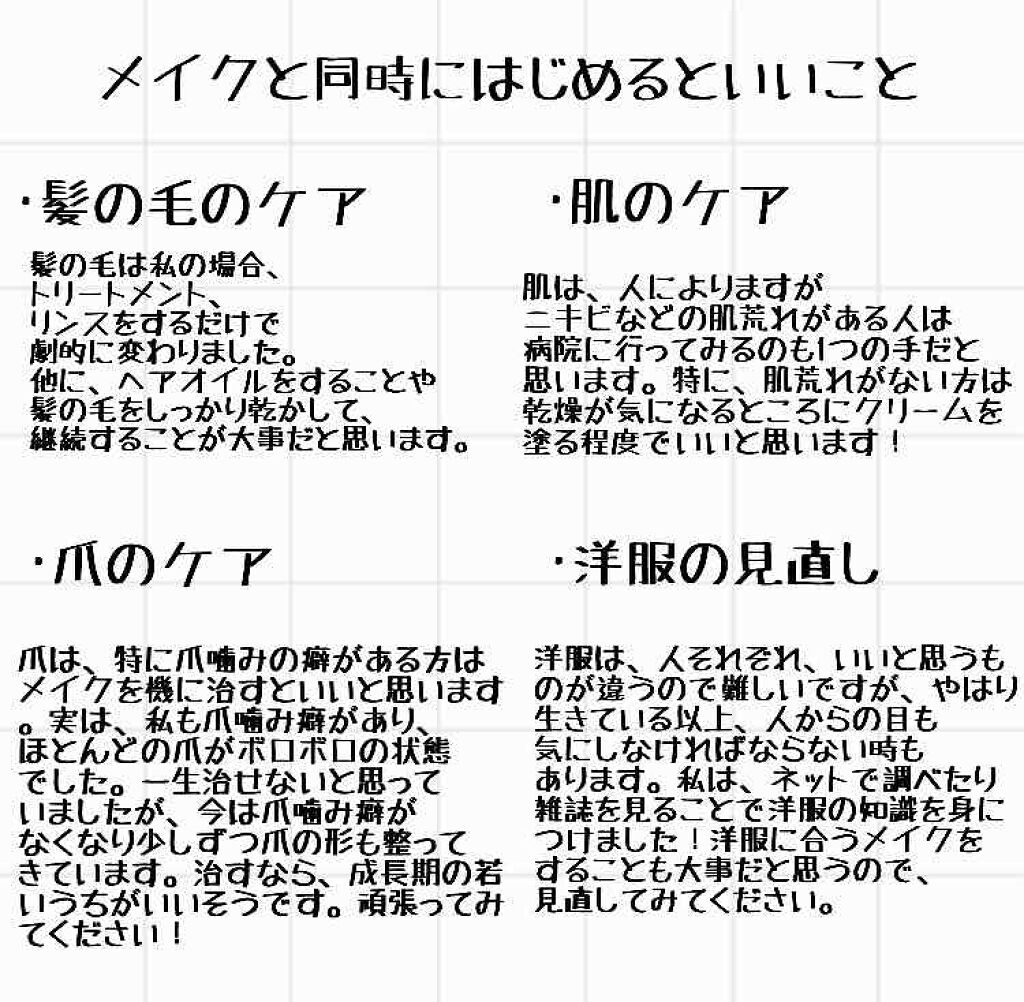 メイクと同時にはじめるといいこと
・髪の毛のケア
髪の毛は私の場合、
トリートメント、
リンスをするだけで
劇的に変わりました。
他に、ヘアオイルをすることや
髪の毛をしっかり乾かして、
継続することが大事だと思います。
・肌のケア
肌は、人によりますが
ニキビなどの肌荒れがある人は
病院に行ってみるのも1つの手だと
思います。特に、肌荒れがない方は
乾燥が気になるところにクリームを
塗る程度でいいと思います！
・爪のケア
爪は、特に爪噛みの癖がある方は
メイクを機に治すといいと思います
。実は、私も爪噛み癖があり、
ほとんどの爪がボロボロの状態
でした。一生治せないと思って
いましたが、今は爪噛み癖が
なくなり少しずつ爪の形も整って
きています。治すなら、成長期の若
いうちがいいそうです。頑張ってみ
てください！
・洋服の見直し
洋服は、人それぞれ、いいと思うも
のが違うので難しいですが、やはり
生きている以上、人からの目も
気にしなければならない時も
あります。私は、ネットで調べたり
雑誌を見ることで洋服の知識を身に
つけました！洋服に合うメイクを
することも大事だと思うので、
見直してみてください。